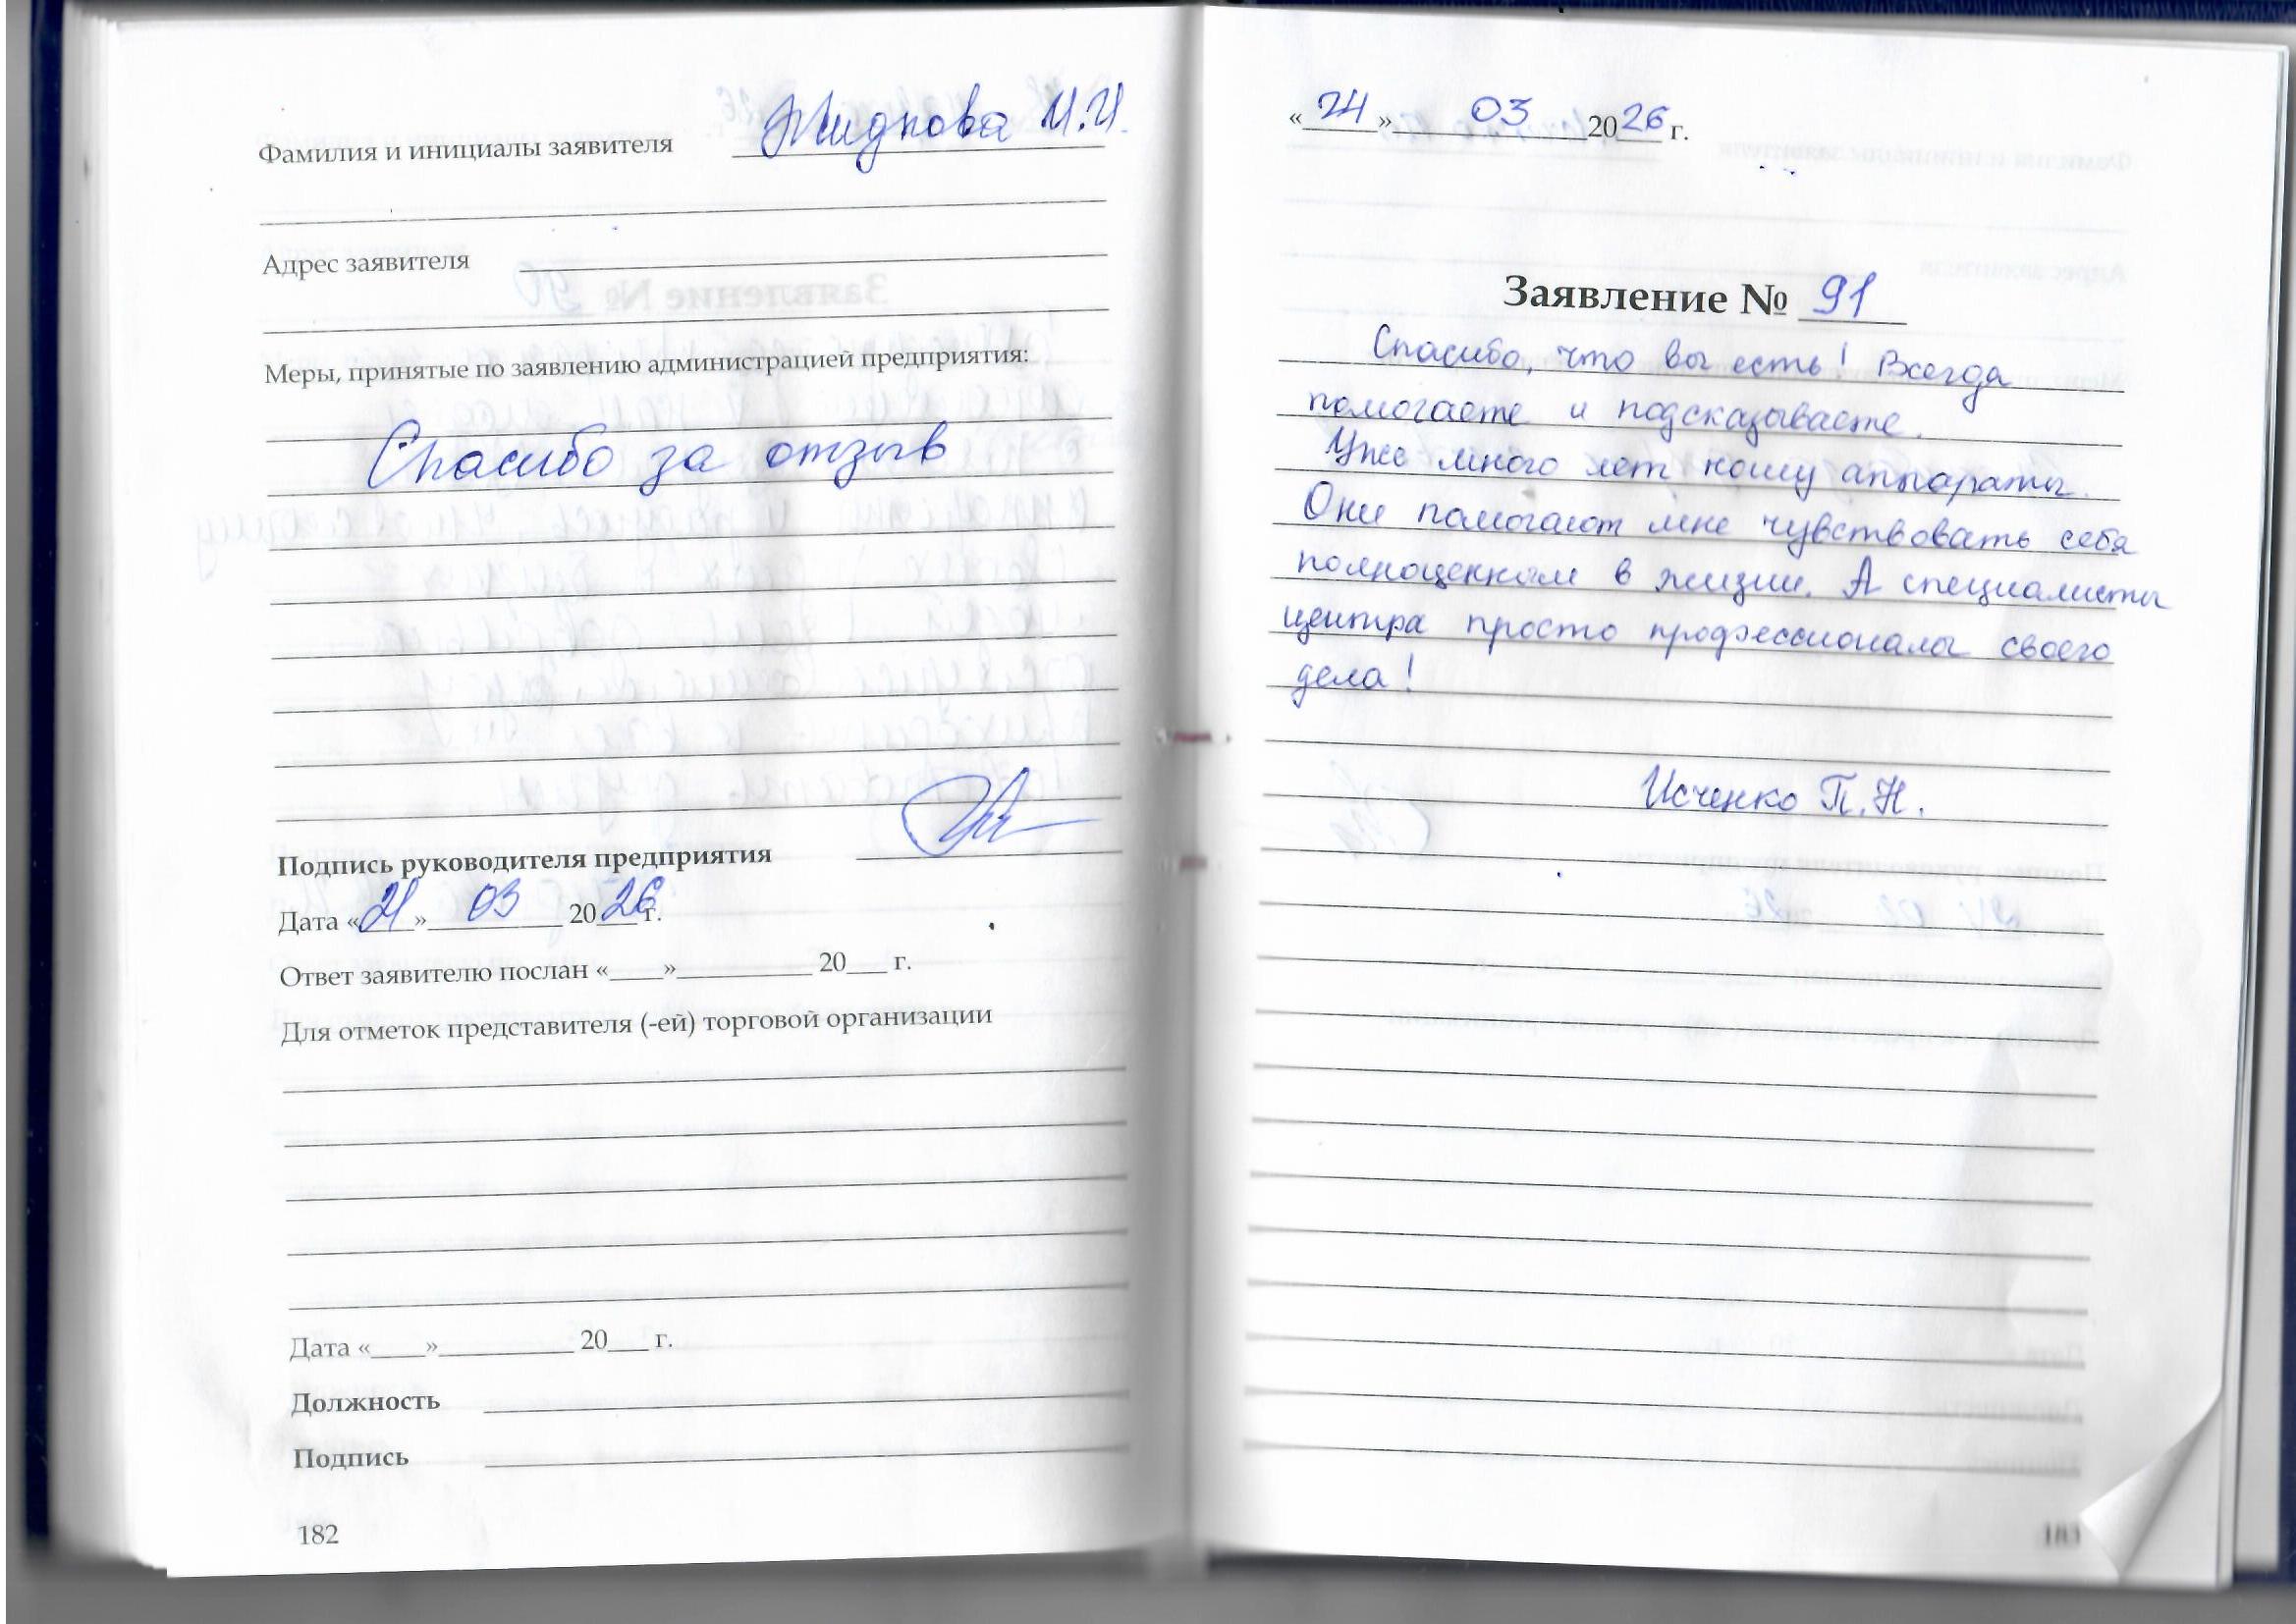 Фамилия и инициалы заявителя Жидкова И.И.
Адрес заявителя
Меры, принятые по заявлению администрацией предприятия:
Спасибо за отзыв
Подпись руководителя предприятия
Дата «21» 03 2026 г.
Ответ заявителю послан «____»__________ 20___ г.
Для отметок представителя (-ей) торговой организации
Дата «____»__________ 20___ г.
Должность
Подпись
182
«24» 03 2026 г.
Заявление № 91
Спасибо, что вы есть! Всегда
помогаете и подсказываете.
Уже много лет ношу аппараты.
Они помогают мне чувствовать себя
полноценным в жизни. А специалисты
центра просто профессионалы своего
дела!
Исченко П.Н.
183